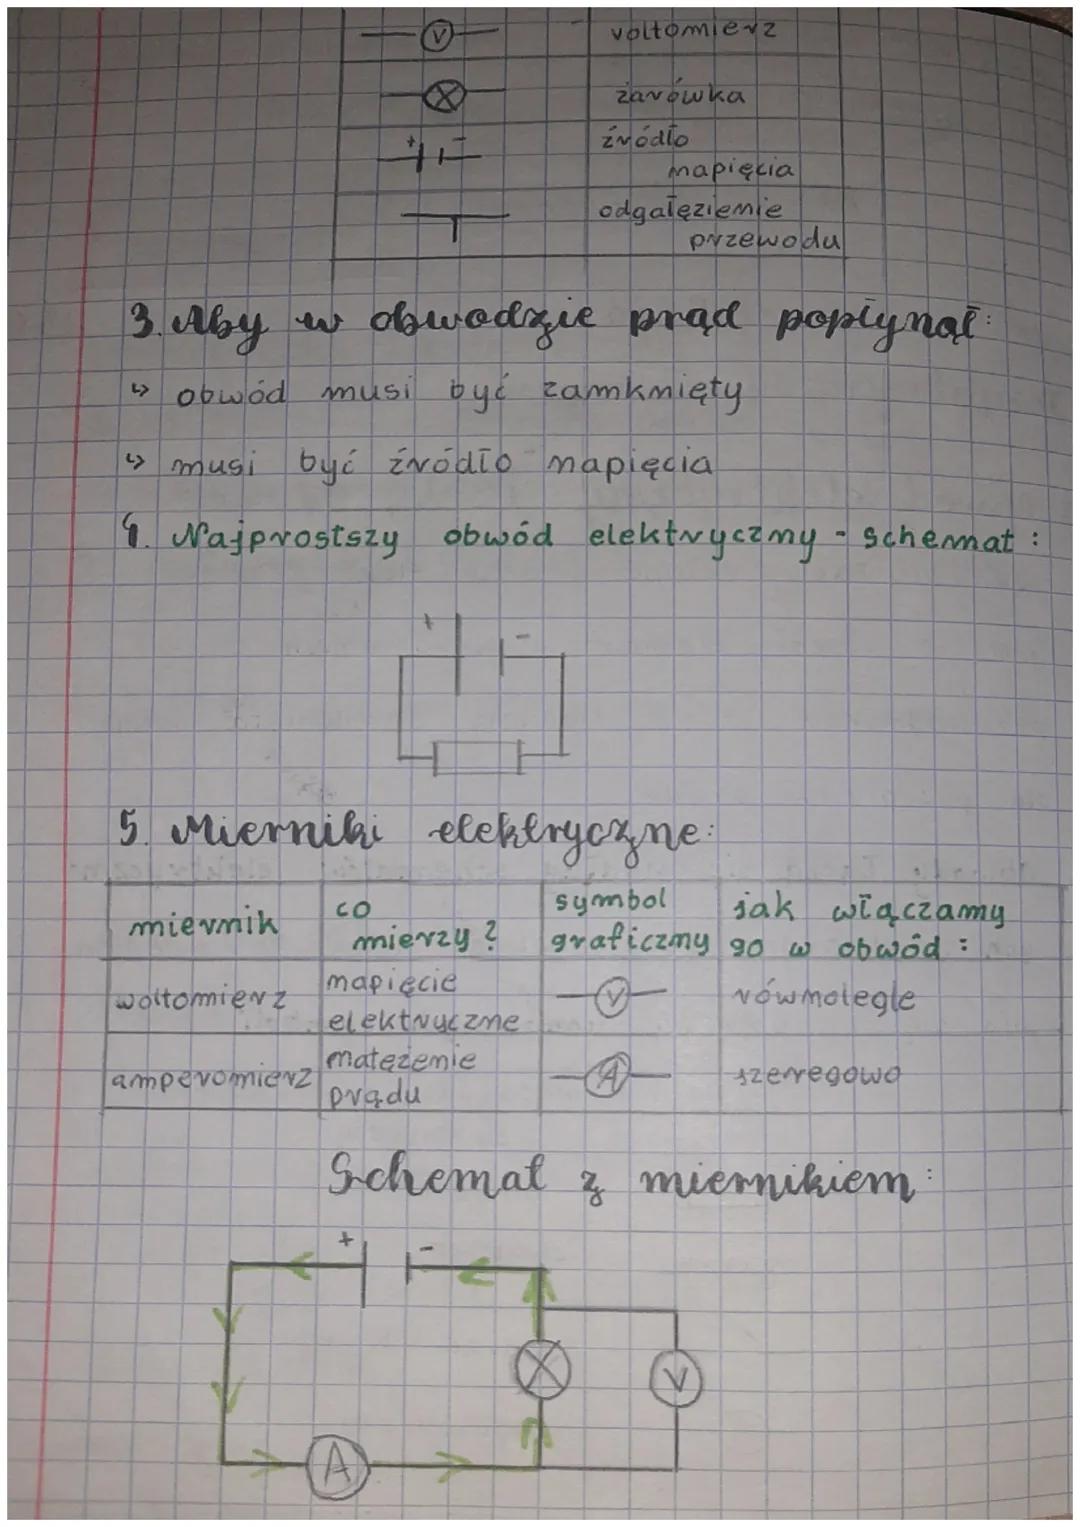 V voltomierz
żarówka
+ - źródło
napięcia
odgałęzienie
przewodu
3. Aby w obwodzie prąd popłynął:
↳ obwód musi być zamknięty
↳ musi być źródło napięcia
4. Najprostszy obwód elektryczny - schemat:
+ -
5. Mierniki elektryczne:
miernik co mierzy? symbol graficzny jak włączamy go w obwód:
woltomierz napięcie elektryczne V równolegle
amperomierz natężenie prądu A szeregowo
Schemat z miernikiem:
+ -
V
A